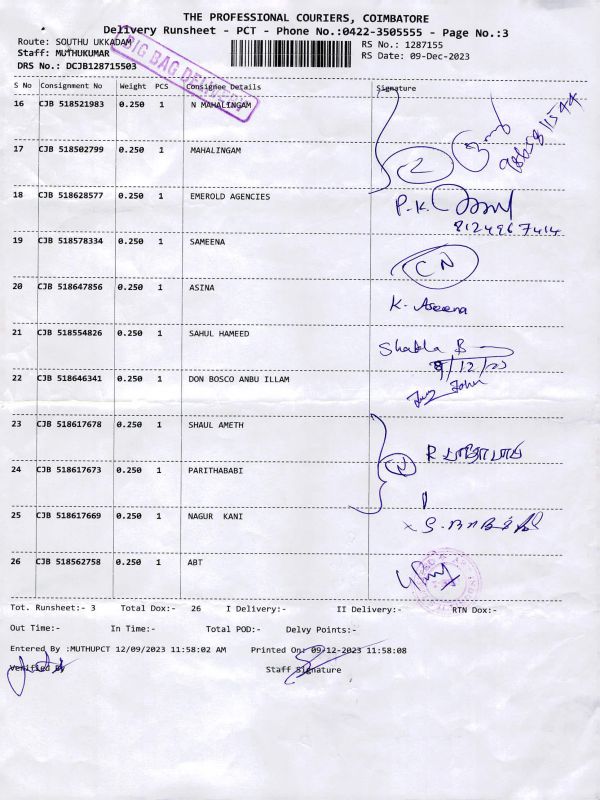 THE PROFESSIONAL COURIERS, COIMBATORE
Delivery Runsheet - PCT - Phone No.:0422-3505555 - Page No.:3
Route: SOUTHU UKKADAM
RS No.: 1287155
Staff: MUTHUKUMAR
RS Date: 09-Dec-2023
DRS No.: DCJB128715503
BIG BAG DELIVERY
S No Consignment No Weight PCS Consignee Details Signature
16 CJB 518521983 0.250 1 N MAHALINGAM
17 CJB 518502799 0.250 1 MAHALINGAM 2
18 CJB 518628577 0.250 1 EMEROLD AGENCIES P.K.
8124967414
19 CJB 518578334 0.250 1 SAMEENA CN
20 CJB 518647856 0.250 1 ASINA K. Aseena
21 CJB 518554826 0.250 1 SAHUL HAMEED
9/12/23
22 CJB 518646341 0.250 1 DON BOSCO ANBU ILLAM John
23 CJB 518617678 0.250 1 SHAUL AMETH
24 CJB 518617673 0.250 1 PARITHABABI
25 CJB 518617669 0.250 1 NAGUR KANI
26 CJB 518562758 0.250 1 ABT
Tot. Runsheet:- 3 Total Dox:- 26 I Delivery:- II Delivery:- RTN Dox:-
Out Time:- In Time:- Total POD:- Delvy Points:-
Entered By :MUTHUPCT 12/09/2023 11:58:02 AM Printed On: 09-12-2023 11:58:08
Verified By Staff Signature